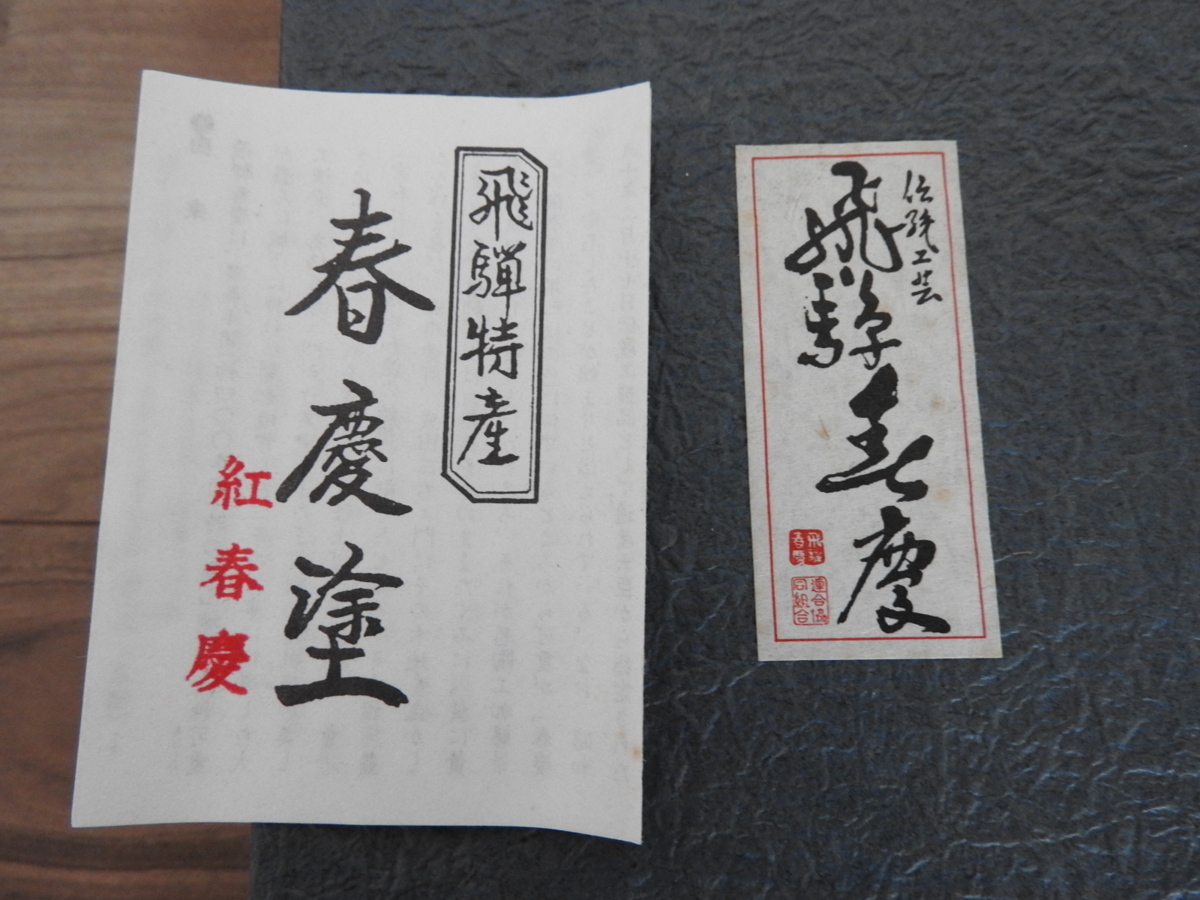 飛騨特産
春慶塗
紅春慶
伝統工芸
飛騨春慶
飛騨
春慶
連合協
同組合